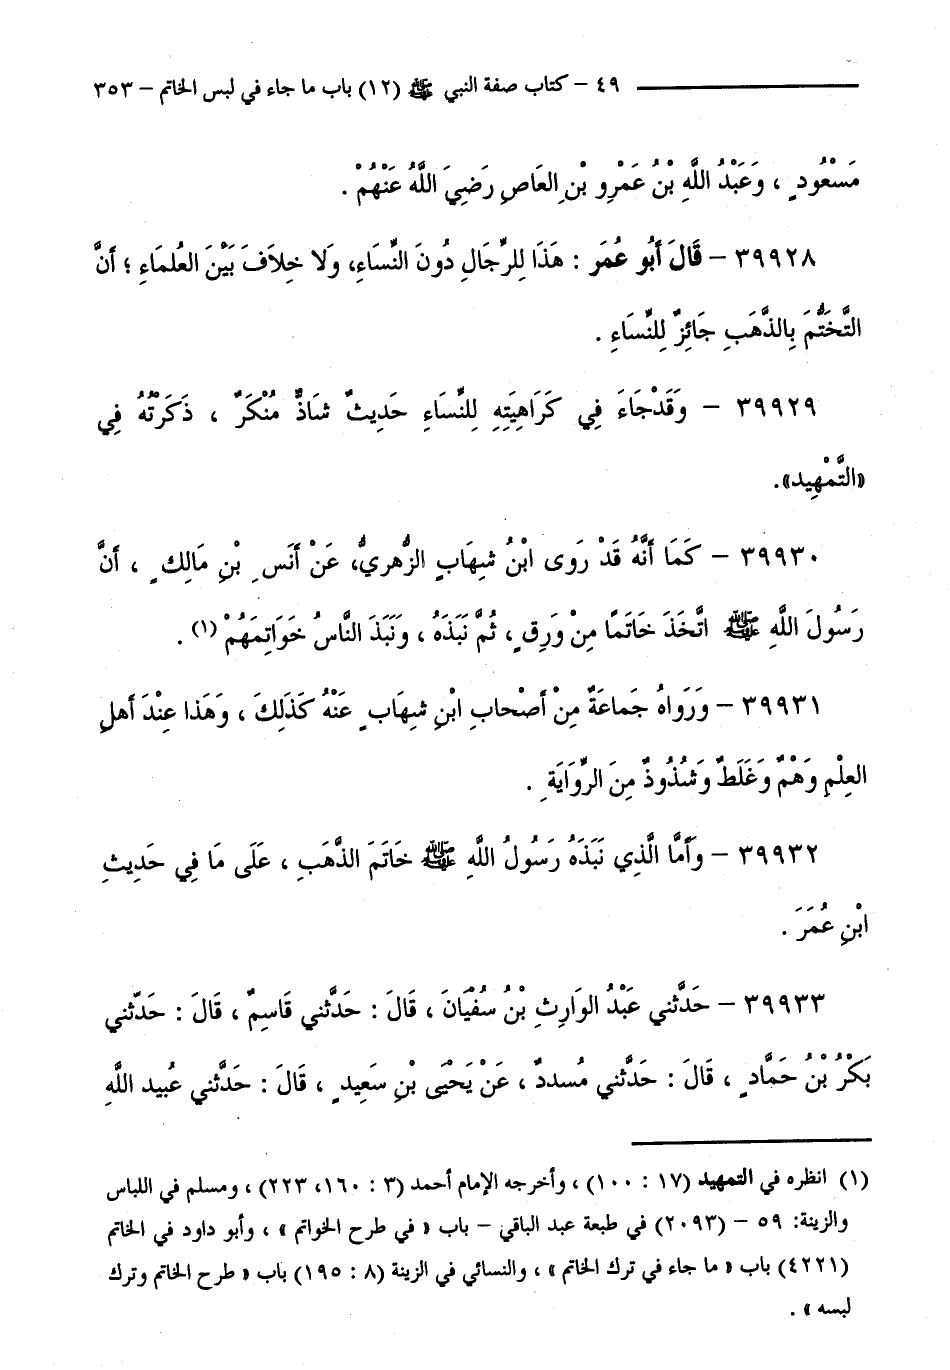 ٤٩ – كتاب صفة النبي ﷺ (١٢) باب ما جاء في لبس الخاتم – ٣٥٣
مَسْعُودٍ ، وَعَبْدُ اللَّهِ بْنُ عَمْرِو بْنِ العَاصِ رَضِيَ اللَّهُ عَنْهُمْ .
٣٩٩٢٨ – قَالَ أَبُو عُمَر : هَذَا لِلرِّجَالِ دُونَ النِّسَاءِ، وَلا خِلافَ بَيْنَ العُلمَاءِ ؛ أنَّ
التَّخَتُّمَ بِالذَّهَبِ جَائِزٌ لِلنِّسَاءِ .
٣٩٩٢٩ – وَقَدْ جَاءَ فِي كَرَاهِيَتِهِ لِلنِّسَاءِ حَدِيثٌ شَاذٌّ مُنْكَرٌ ، ذَكَرْتُهُ فِي
«التَّمْهِيد».
٣٩٩٣٠ – كَمَا أَنَّهُ قَدْ رَوَى ابْنُ شِهَابٍ الزُّهريُّ، عَنْ أَنَسِ بْنِ مَالِكٍ ، أنَّ
رَسُولَ اللَّهِ ﷺ اتَّخَذَ خَاتَمًا مِنْ وَرِقٍ ، ثُمَّ نَبَذَهُ ، وَنَبَذَ النَّاسُ خَوَاتِمَهُمْ (١) .
٣٩٩٣١ – وَرَوَاهُ جَمَاعَةٌ مِنْ أَصْحابِ ابْنِ شِهَابٍ عَنْهُ كَذَلِكَ ، وَهَذا عِنْدَ أَهلِ
العِلْمِ وَهْمٌ وَغَلَطٌ وَشُذُوذٌ مِنَ الرِّوَايَةِ .
٣٩٩٣٢ – وَأَمَّا الَّذِي نَبَذَهُ رَسُولُ اللَّهِ ﷺ خَاتَمَ الذَّهَبِ ، عَلَى مَا فِي حَدِيثِ
ابْنِ عُمَرَ .
٣٩٩٣٣ – حَدَّثني عَبْدُ الوَارِثِ بْنُ سُفْيَانَ ، قَالَ : حَدَّثني قَاسِمٌ ، قَالَ : حَدّثني
بَكْرُ بْنُ حَمَّادٍ ، قَالَ : حَدَّثني مُسددٌ ، عَنْ يَحْيَى بْنِ سَعِيدٍ ، قَالَ : حَدَّثني عُبيد اللَّهِ
(١) انظره في التمهيد (١٧ : ١٠٠) ، وأخرجه الإمام أحمد (٣ : ١٦٠، ٢٢٣) ، ومسلم في اللباس
والزينة: ٥٩ – (٢٠٩٣) في طبعة عبد الباقي – باب « في طرح الخواتم » ، وأبو داود في الخاتم
(٤٢٢١) باب « ما جاء في ترك الخاتم » ، والنسائي في الزينة (٨ : ١٩٥) باب « طرح الخاتم وترك
لبسه » .